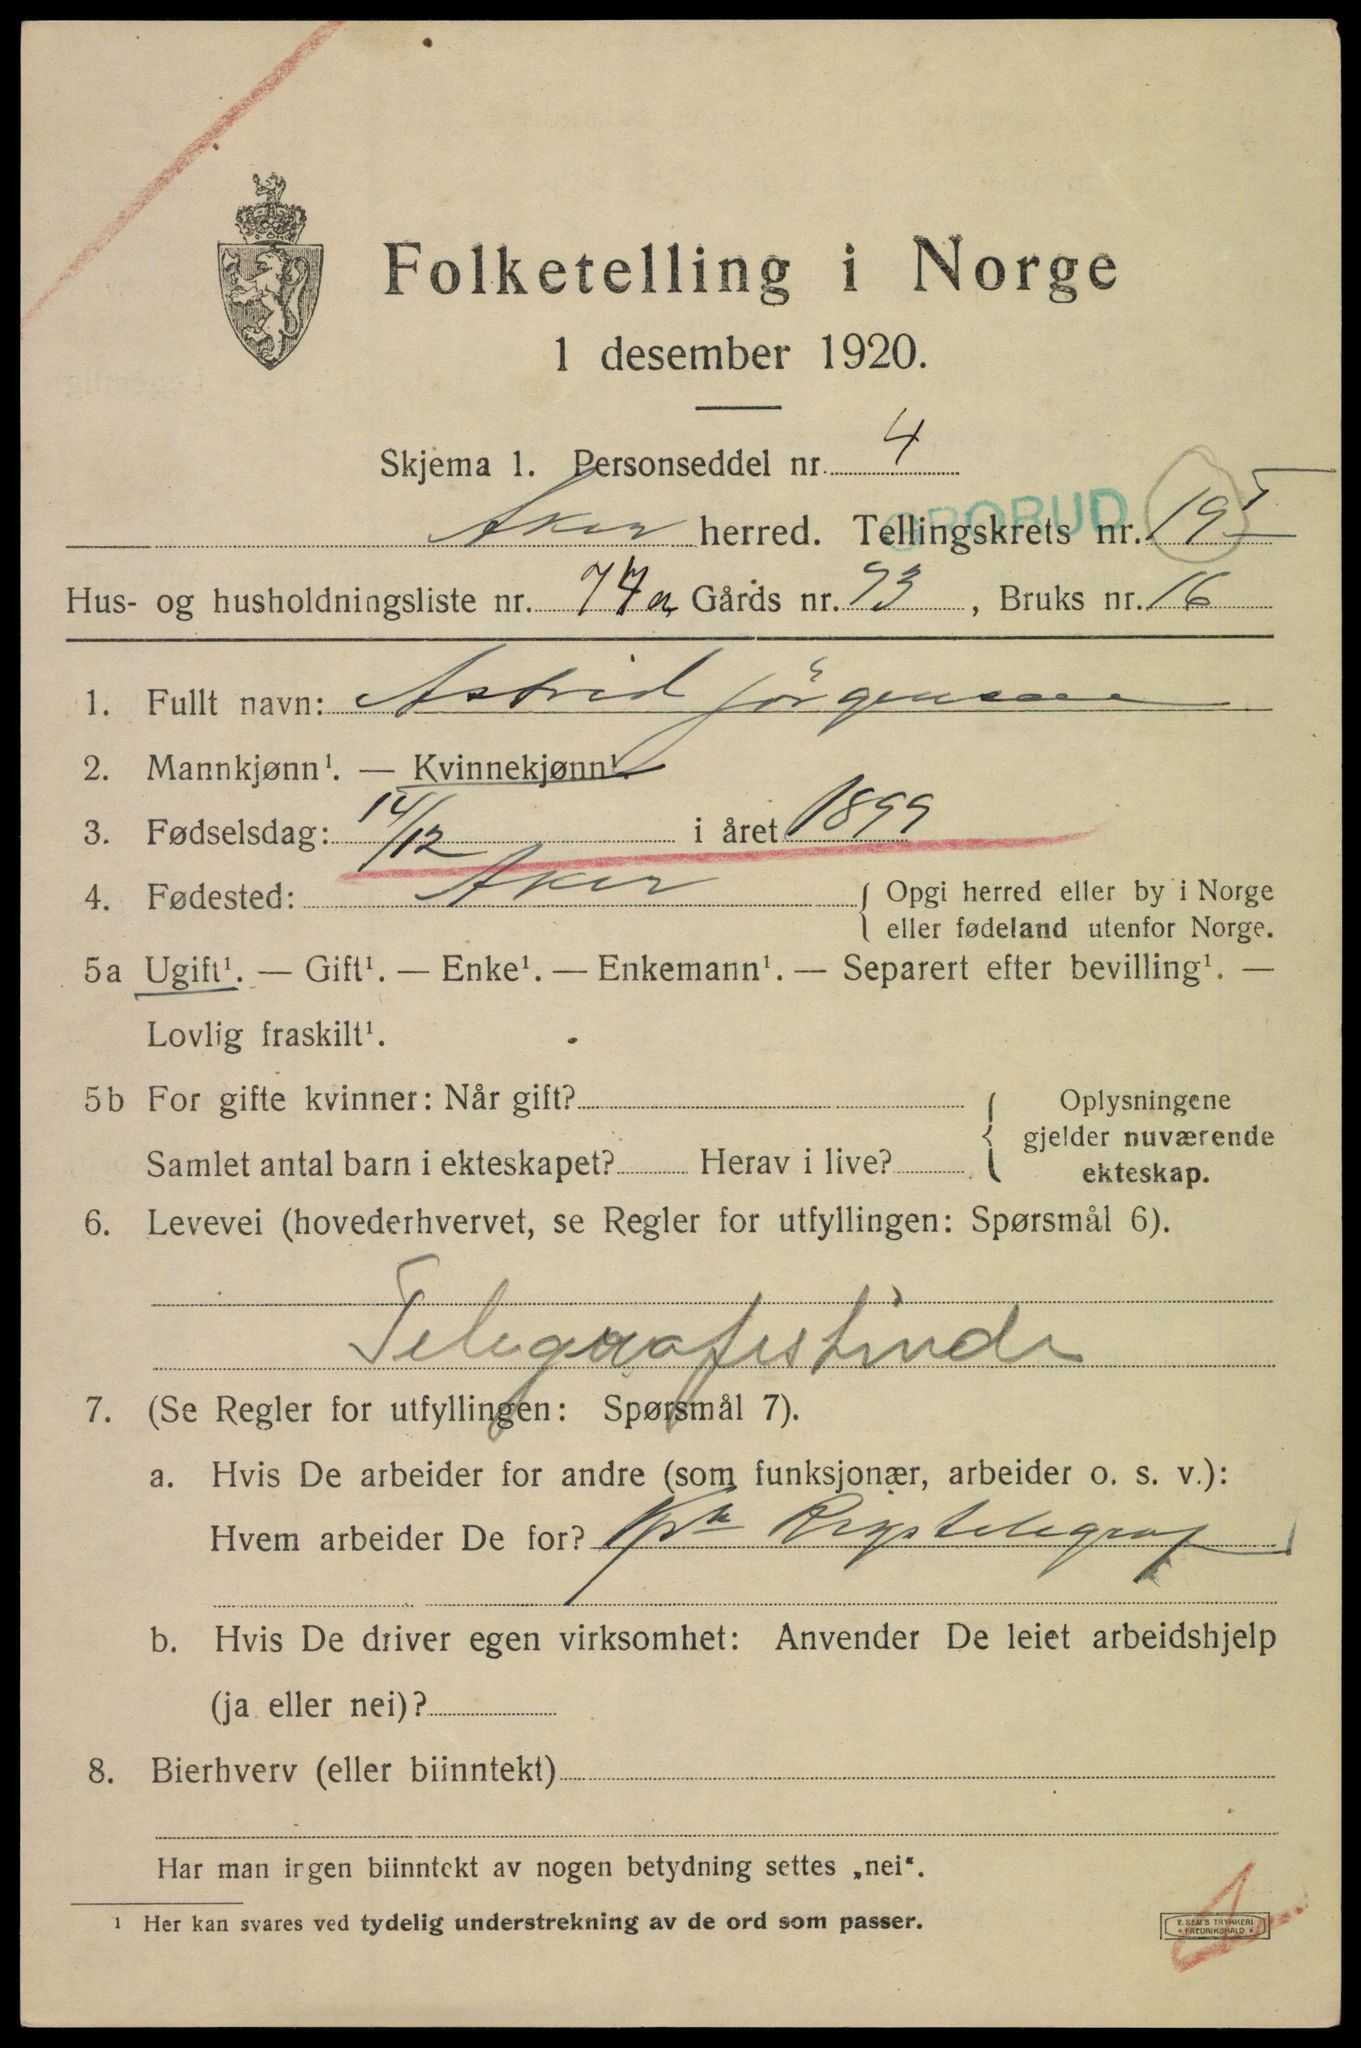 Folketelling i Norge
1 desember 1920.
Skjema 1. Personseddel nr. 4
Aker herred. Tellingskrets nr. 19 I
GRORUD
Hus- og husholdningsliste nr. 77a Gårds nr. 93, Bruks nr. 16
1. Fullt navn: Astrid Jörgensen
2. Mannkjønn¹. — Kvinnekjønn¹.
3. Fødselsdag: 14/12 i året 1899
4. Fødested: Aker { Opgi herred eller by i Norge
eller fødeland utenfor Norge.
5a Ugift¹. — Gift¹. — Enke¹. — Enkemann¹. — Separert efter bevilling¹. —
Lovlig fraskilt¹.
5b For gifte kvinner: Når gift? { Oplysningene
gjelder nuværende
Samlet antal barn i ekteskapet? Herav i live? ekteskap.
6. Levevei (hovederhvervet, se Regler for utfyllingen: Spørsmål 6).
Telegrafistinde
7. (Se Regler for utfyllingen: Spørsmål 7).
a. Hvis De arbeider for andre (som funksjonær, arbeider o. s. v.):
Hvem arbeider De for? Rigstelegraf
b. Hvis De driver egen virksomhet: Anvender De leiet arbeidshjelp
(ja eller nei)?
8. Bierhverv (eller biinntekt)
Har man ingen biinntekt av nogen betydning settes „nei“.
¹ Her kan svares ved tydelig understrekning av de ord som passer.
E. SEM'S TRYKKERI
FREDRIKSHALD